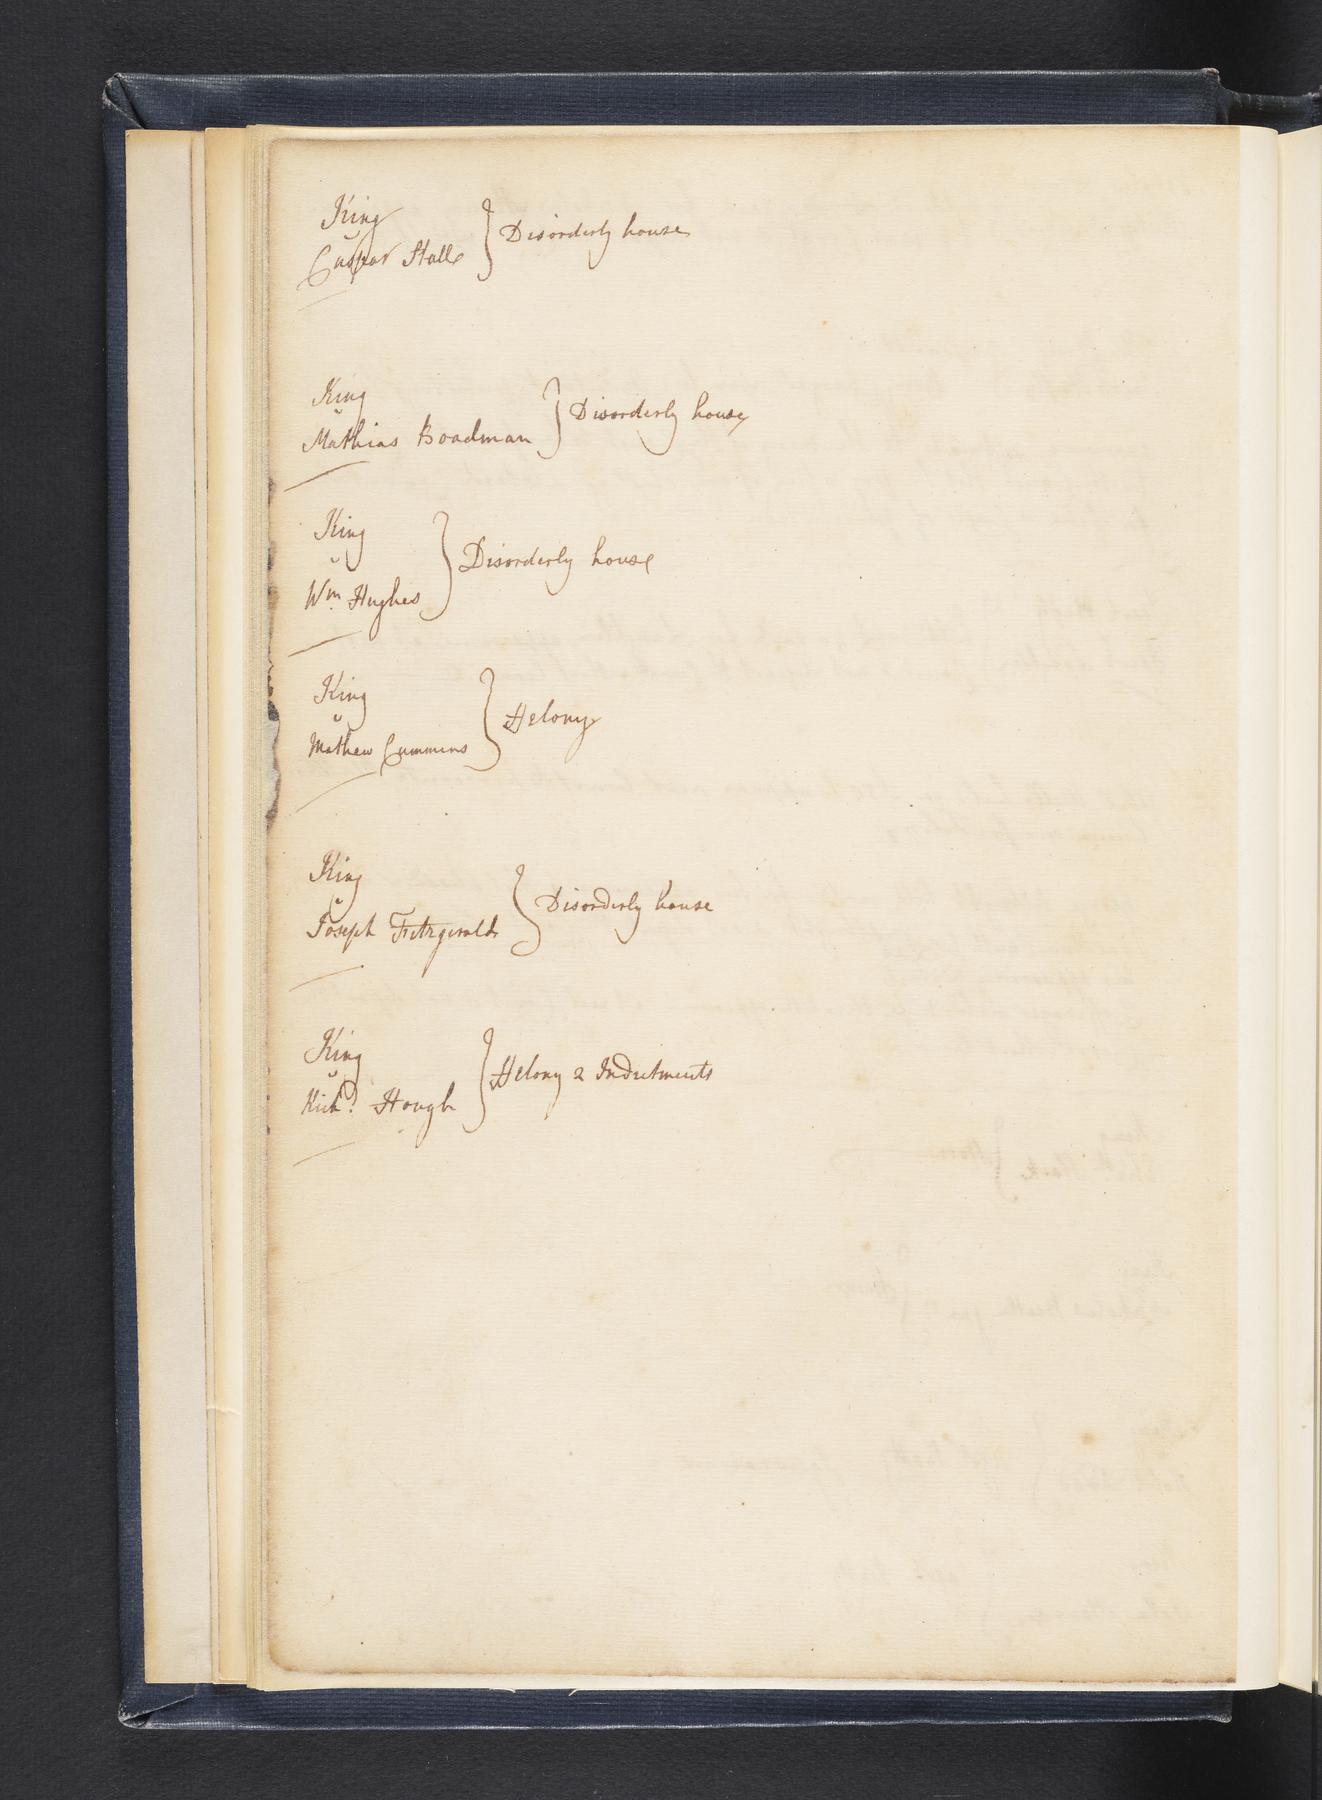 King
v
Caspar Halle } Disorderly house
King
v
Mathias Boadman } Disorderly house
King
v
Wm. Hughes } Disorderly house
King
v
Mathew Cummins } Felony
King
v
Joseph Fitzgerald } Disorderly house
King
v
Richd. Hough } Felony 2 Indictments